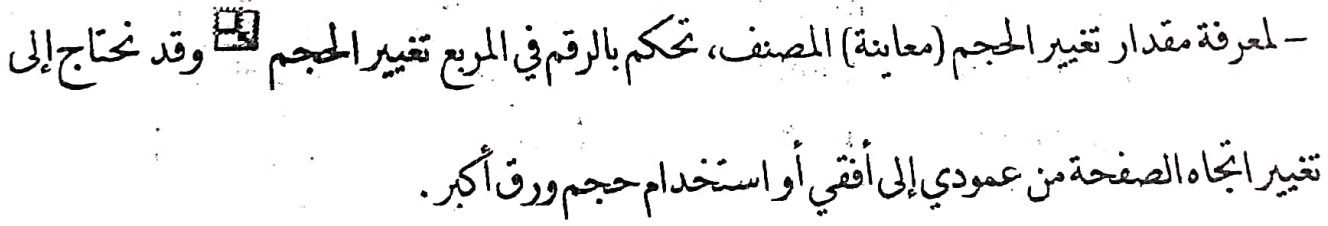 - لمعرفة مقدار تغيير الحجم (معاينة) المصنف، تحكم بالرقم في المربع تغيير الحجم وقد نحتاج إلى
تغيير اتجاه الصفحة من عمودي إلى أفقي أو استخدام حجم ورق أكبر.